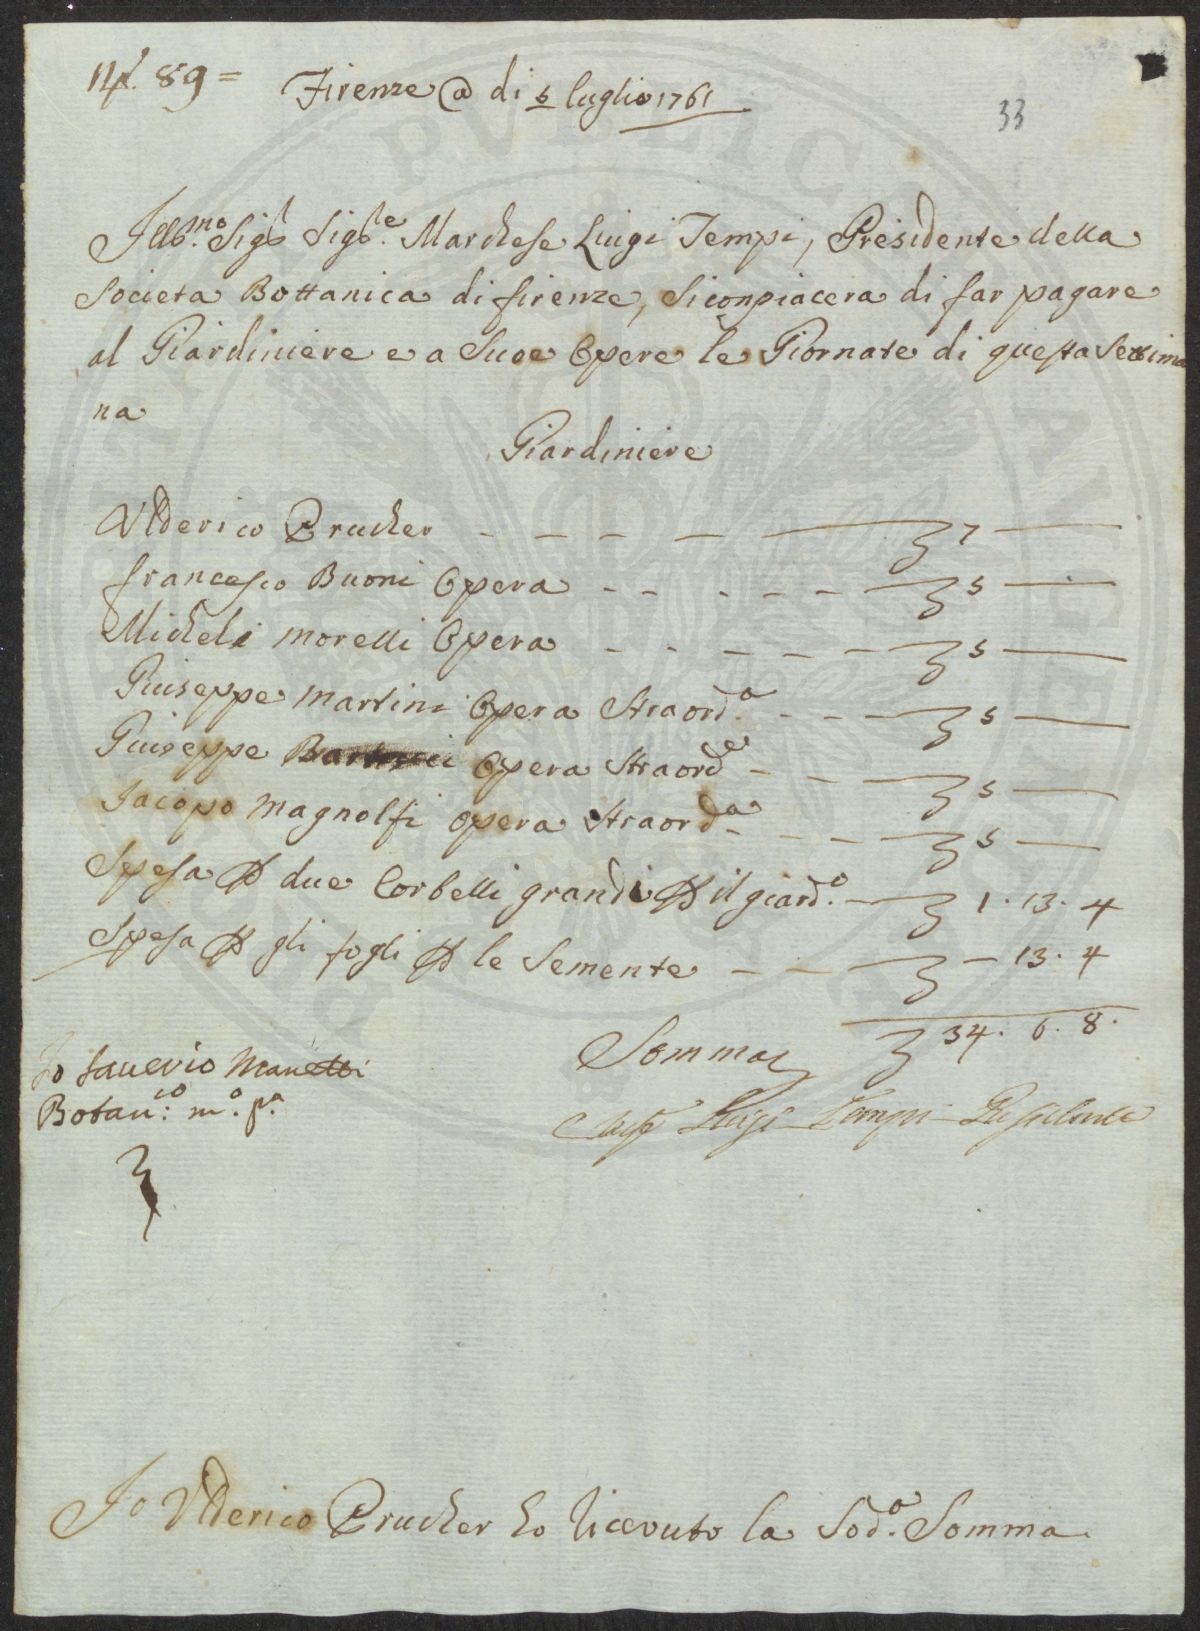 N. 89 =
Firenze @ di 5 luglio 1761
33
Illo.mo Sig.e Sig.e Marchese Luigi Tempi, Presidente della
Societa Bottanica di firenze, Si conpiacera di far pagare
al Giardiniere e a Suoe Opere le Giornate di questa Settima
na
Giardiniere
Vlderico Prucher — 7 —
francesco Buoni Opera — 5 —
Micheli Morelli Opera — 5 —
Giuseppe Martini Opera Straord.a — 5 —
Giuseppe Opera Straord.e — 5 —
Jacopo Magnolfi opera Straord.a — 5 —
Spesa p due Corbelli grandi p il giard.o — 1. 13. 4
Spesa p gli fogli p le Semente — 13. 4
Somma 34. 6. 8.
Io Saverio Manetti
Botan.co m.o p.a
Luigi Tempi Presidente
Io Vlderico Prucher ho ricevuto la Sod.a Somma
PVBLIC